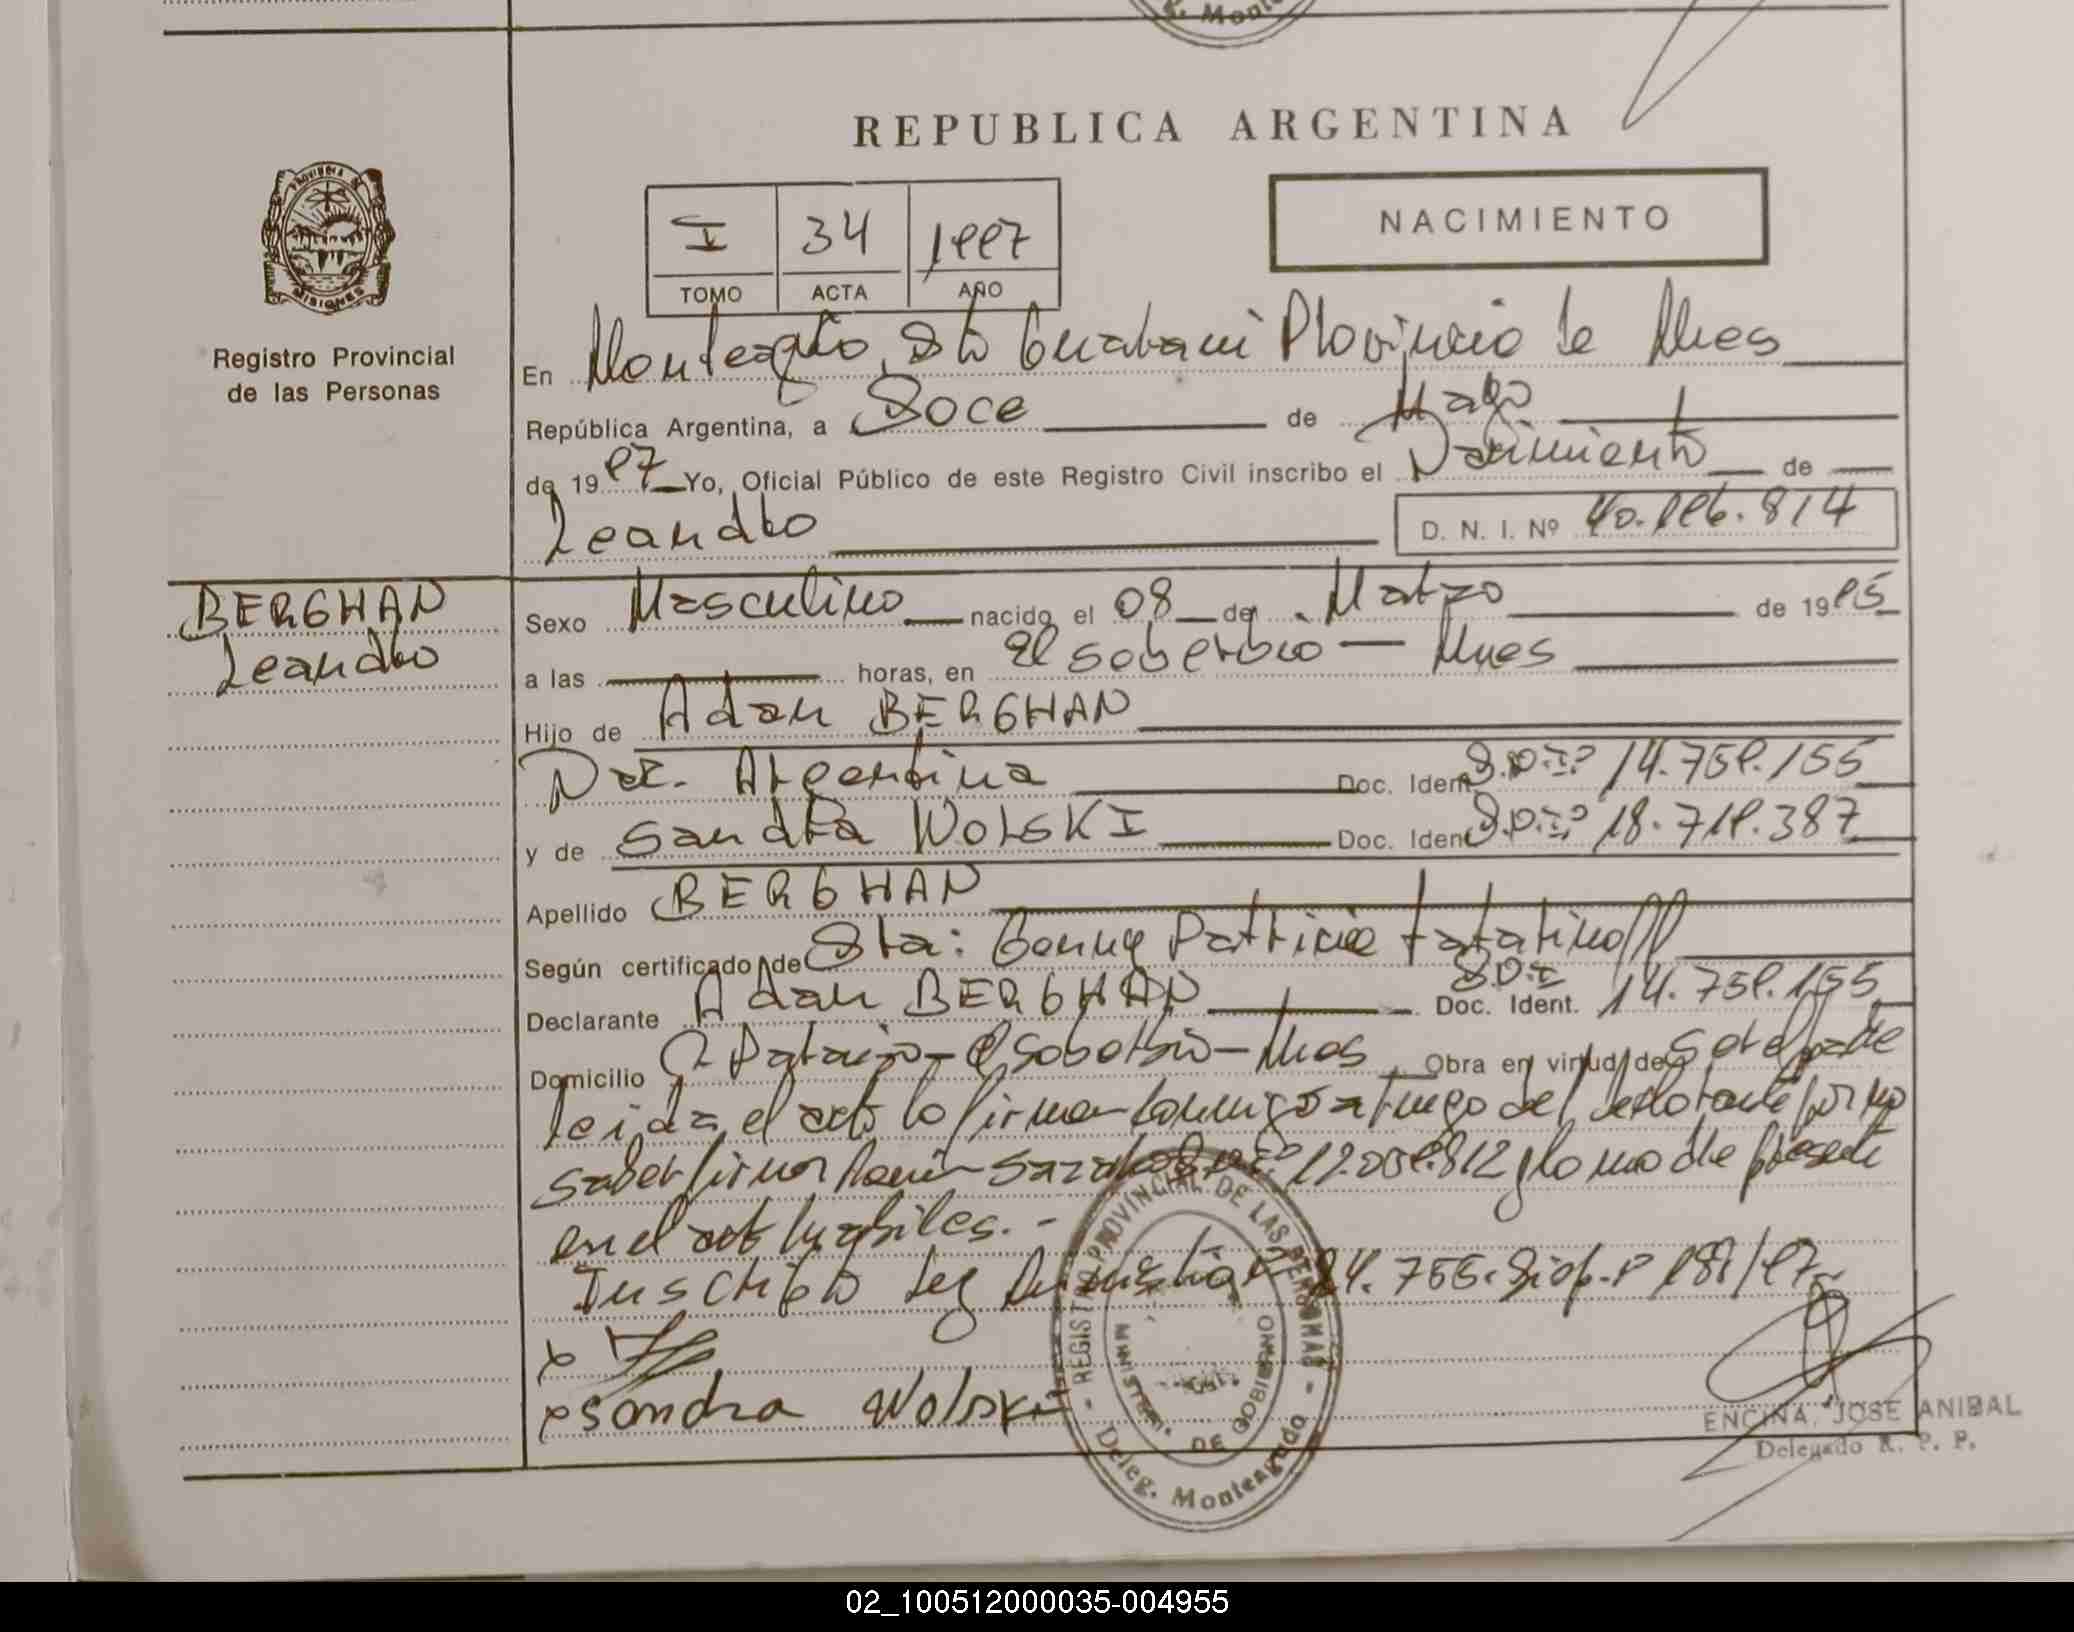 g. Monte
REPUBLICA ARGENTINA
PROVINCIA DE
MISIONES
Registro Provincial
de las Personas
I 34 1997
TOMO ACTA AÑO
NACIMIENTO
En Monteagdo, Dto Guarani Provincia de Mnes
República Argentina, a Doce de Mayo
de 1997 Yo, Oficial Público de este Registro Civil inscribo el Nacimiento de
Leandro D. N. I. Nº 40.196.814
BERGHAN
Leandro
Sexo Masculino nacido el 08 de Marzo de 1995
a las horas, en El Soberbio - Mnes
Hijo de Adan BERGHAN
Nac. Argentina Doc. Ident D.N.I.º 14.759.155
y de Sandra WOLSKI Doc. Ident D.N.I.º 18.719.387
Apellido BERGHAN
Según certificado de Sta:
Declarante Adan BERGHAN Doc. Ident. D.N.I 14.759.155
Domicilio - El Soberbio - Mnes Obra en virtud de
leida el acta la firma conmigo a ruego del declarante por no
saber firmar Ramón D.N.I.º y la madre presente
en el acto habiles.-
Inscribo Ley 24.755. Disp. Nº 189/97
x Sandra Wolski
- REGISTRO PROVINCIAL DE LAS PERSONAS -
MINISTERIO DE GOBIERNO
Deleg. Monteagudo
ENCINA, JOSE ANIBAL
Delegado R. P. P.
02_100512000035-004955